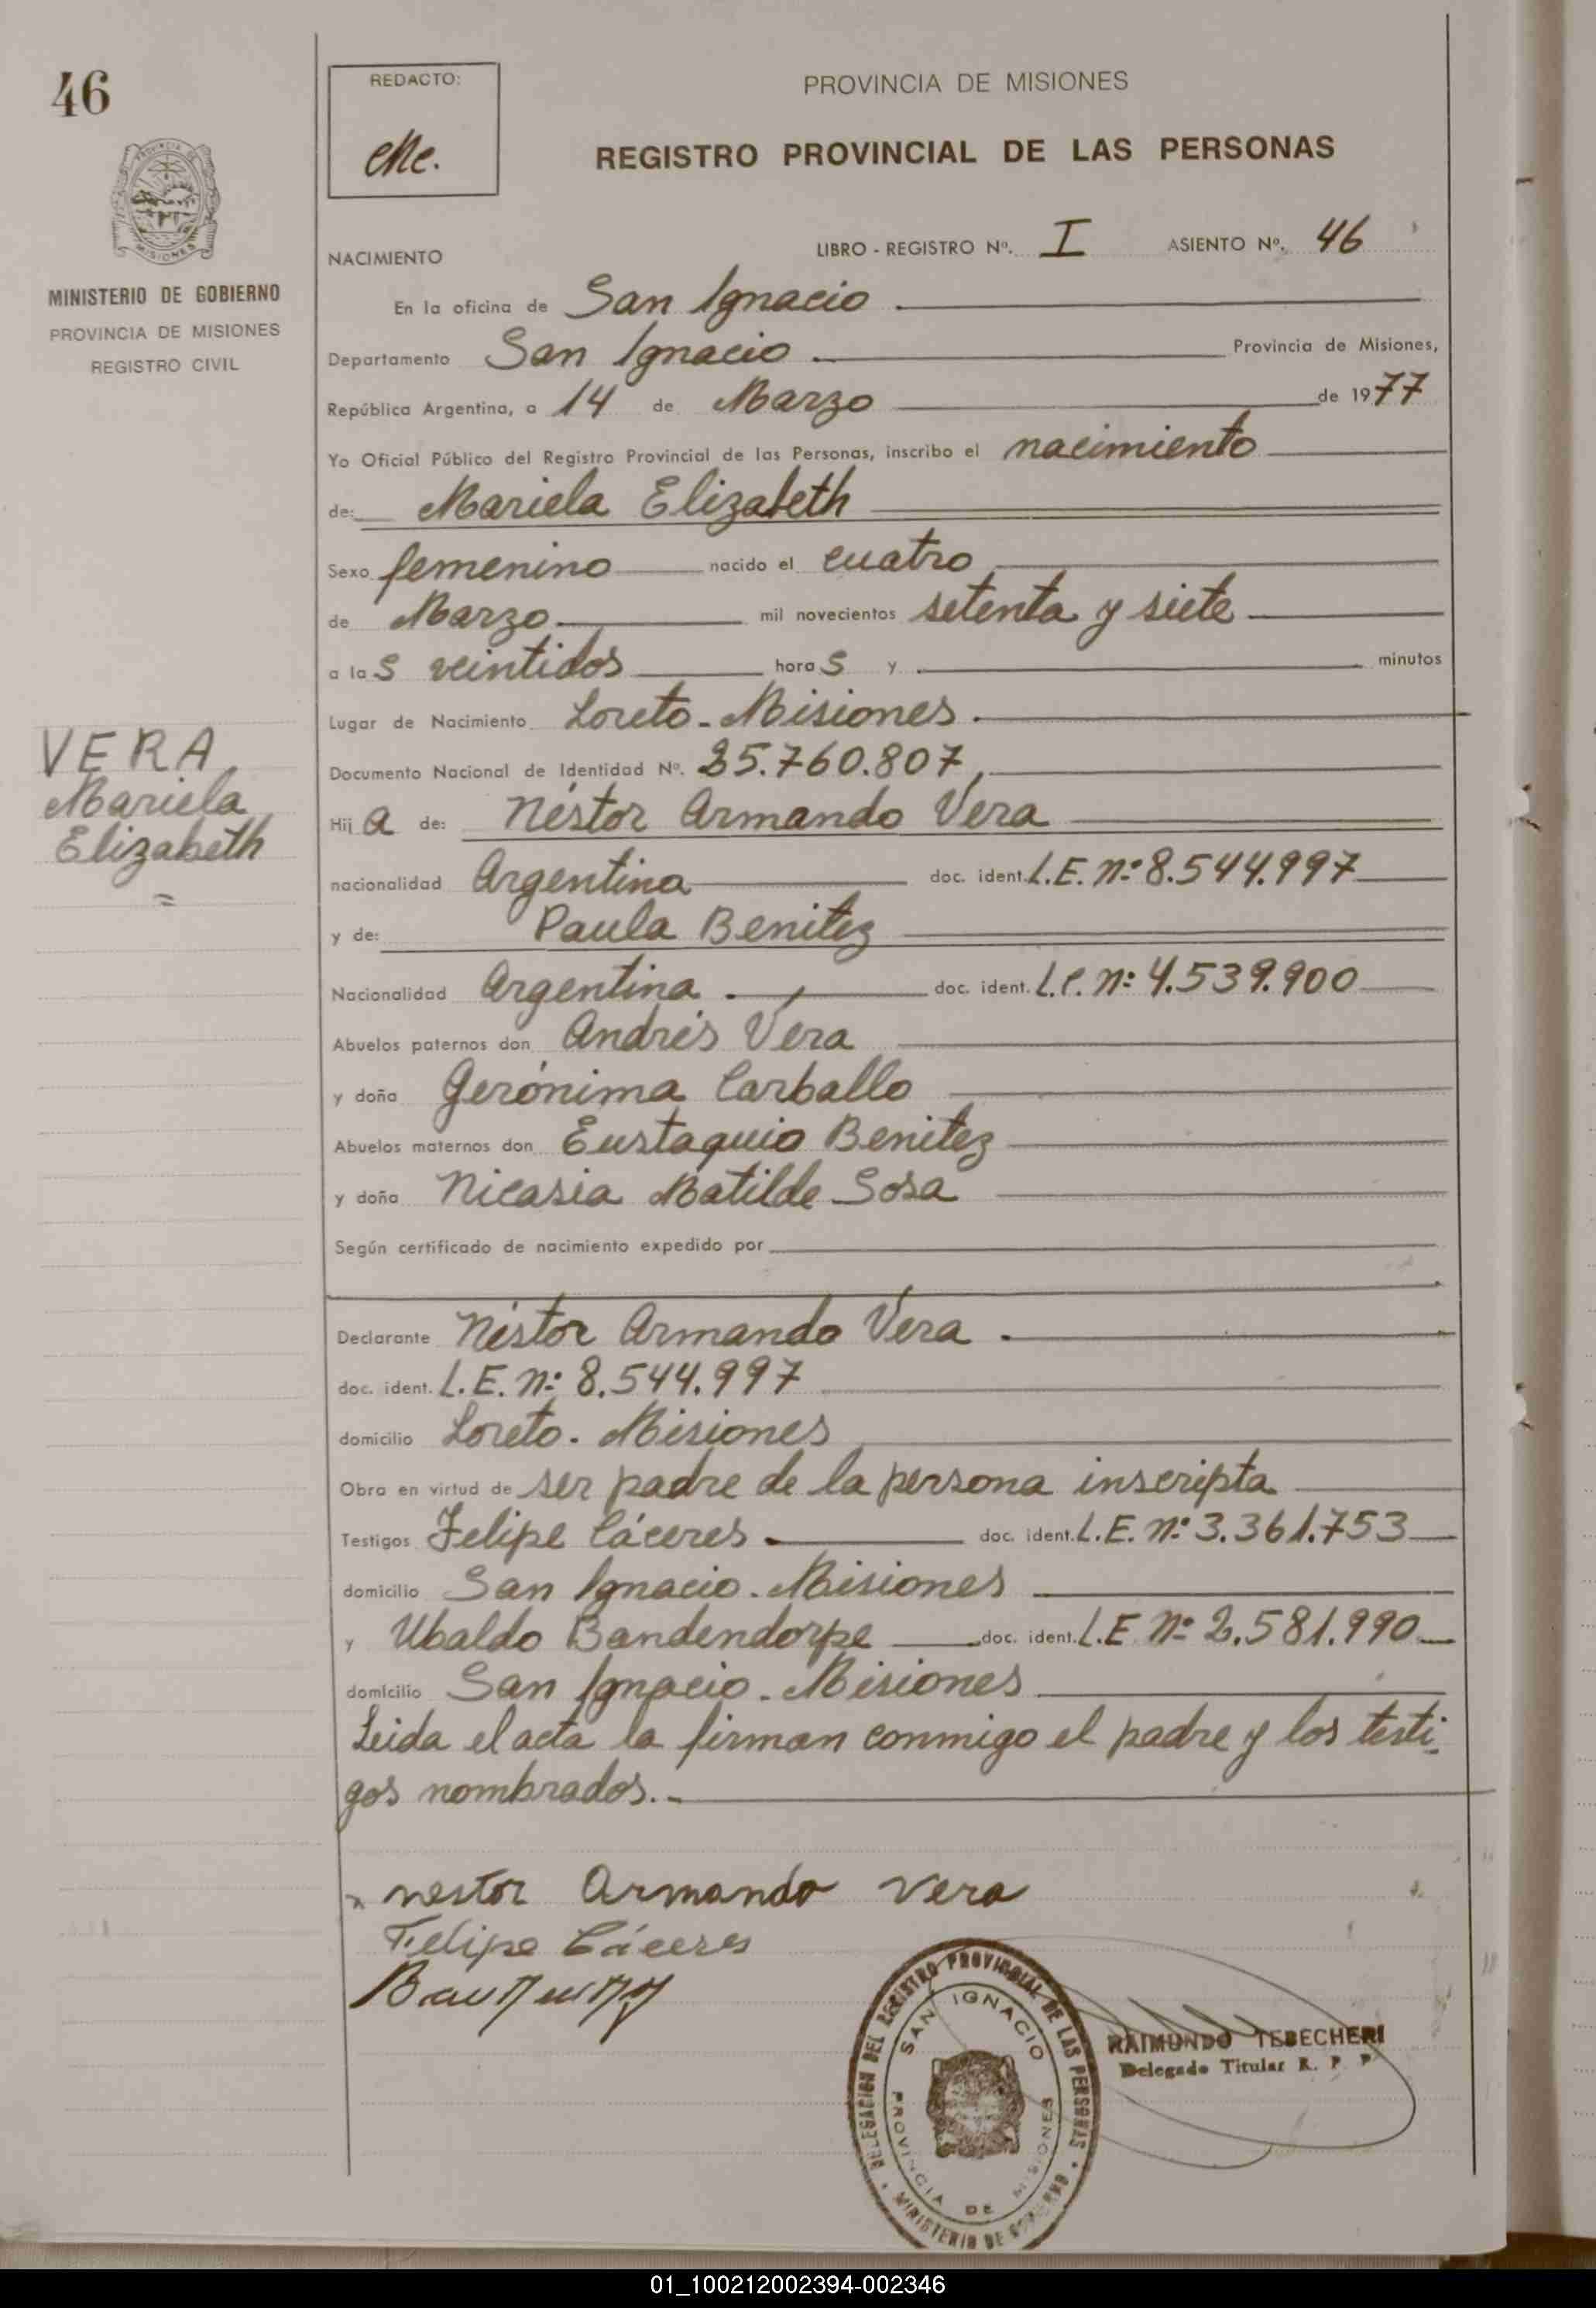 46
REDACTO:
PROVINCIA DE MISIONES
REGISTRO PROVINCIAL DE LAS PERSONAS
MINISTERIO DE GOBIERNO
PROVINCIA DE MISIONES
REGISTRO CIVIL
NACIMIENTO LIBRO - REGISTRO Nº. I ASIENTO Nº. 46
En la oficina de San Ignacio
Departamento San Ignacio. Provincia de Misiones,
República Argentina, a 14 de Marzo de 1977
Yo Oficial Público del Registro Provincial de las Personas, inscribo el nacimiento
de: Mariela Elizabeth
Sexo femenino nacido el cuatro
de Marzo. mil novecientos setenta y siete
a las veintidos horas y minutos
Lugar de Nacimiento Loreto - Misiones.
Documento Nacional de Identidad Nº. 25.760.807,
VERA,
Mariela
Elizabeth
Hija de: Néstor Armando Vera
nacionalidad Argentina doc. ident. L.E. nº 8.544.997
y de: Paula Benitez
Nacionalidad Argentina. doc. ident. L.C. nº 4.539.900
Abuelos paternos don Andrés Vera
y doña Gerónima Carballo
Abuelos maternos don Eustaquio Benitez
y doña Nicasia Matilde Sosa
Según certificado de nacimiento expedido por
Declarante Néstor Armando Vera.
doc. ident. L.E. nº 8.544.997
domicilio Loreto. Misiones
Obra en virtud de ser padre de la persona inscripta
Testigos Felipe Cáceres. doc. ident. L.E. nº 3.361.753
domicilio San Ignacio. Misiones
y Ubaldo Bandendorpe doc. ident. L.E Nº 2.581.990
domicilio San Ignacio. Misiones
Leida el acta la firman conmigo el padre y los testi-
gos nombrados. -
nestor Armando Vera
Felipe Cáceres
DELEGACION DEL REGISTRO PROVINCIAL DE LAS PERSONAS
MINISTERIO DE GOBIERNO
SAN IGNACIO
PROVINCIA DE MISIONES
RAIMUNDO TEBECHERI
Delegado Titular R. P. P
01_100212002394-002346